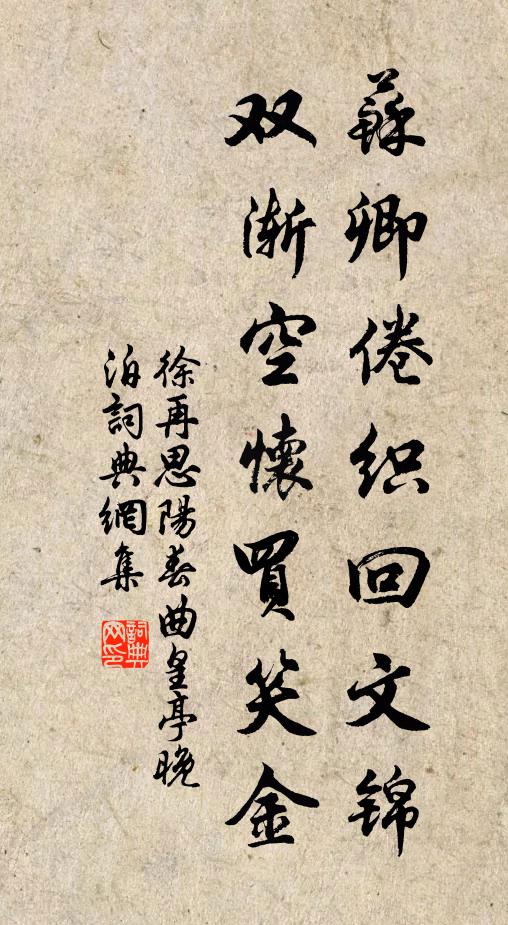 蘇卿倦织回文锦
双渐空懷買笑金
徐再思陽春曲皇亭晚
泊詞典網集
詞典
网印